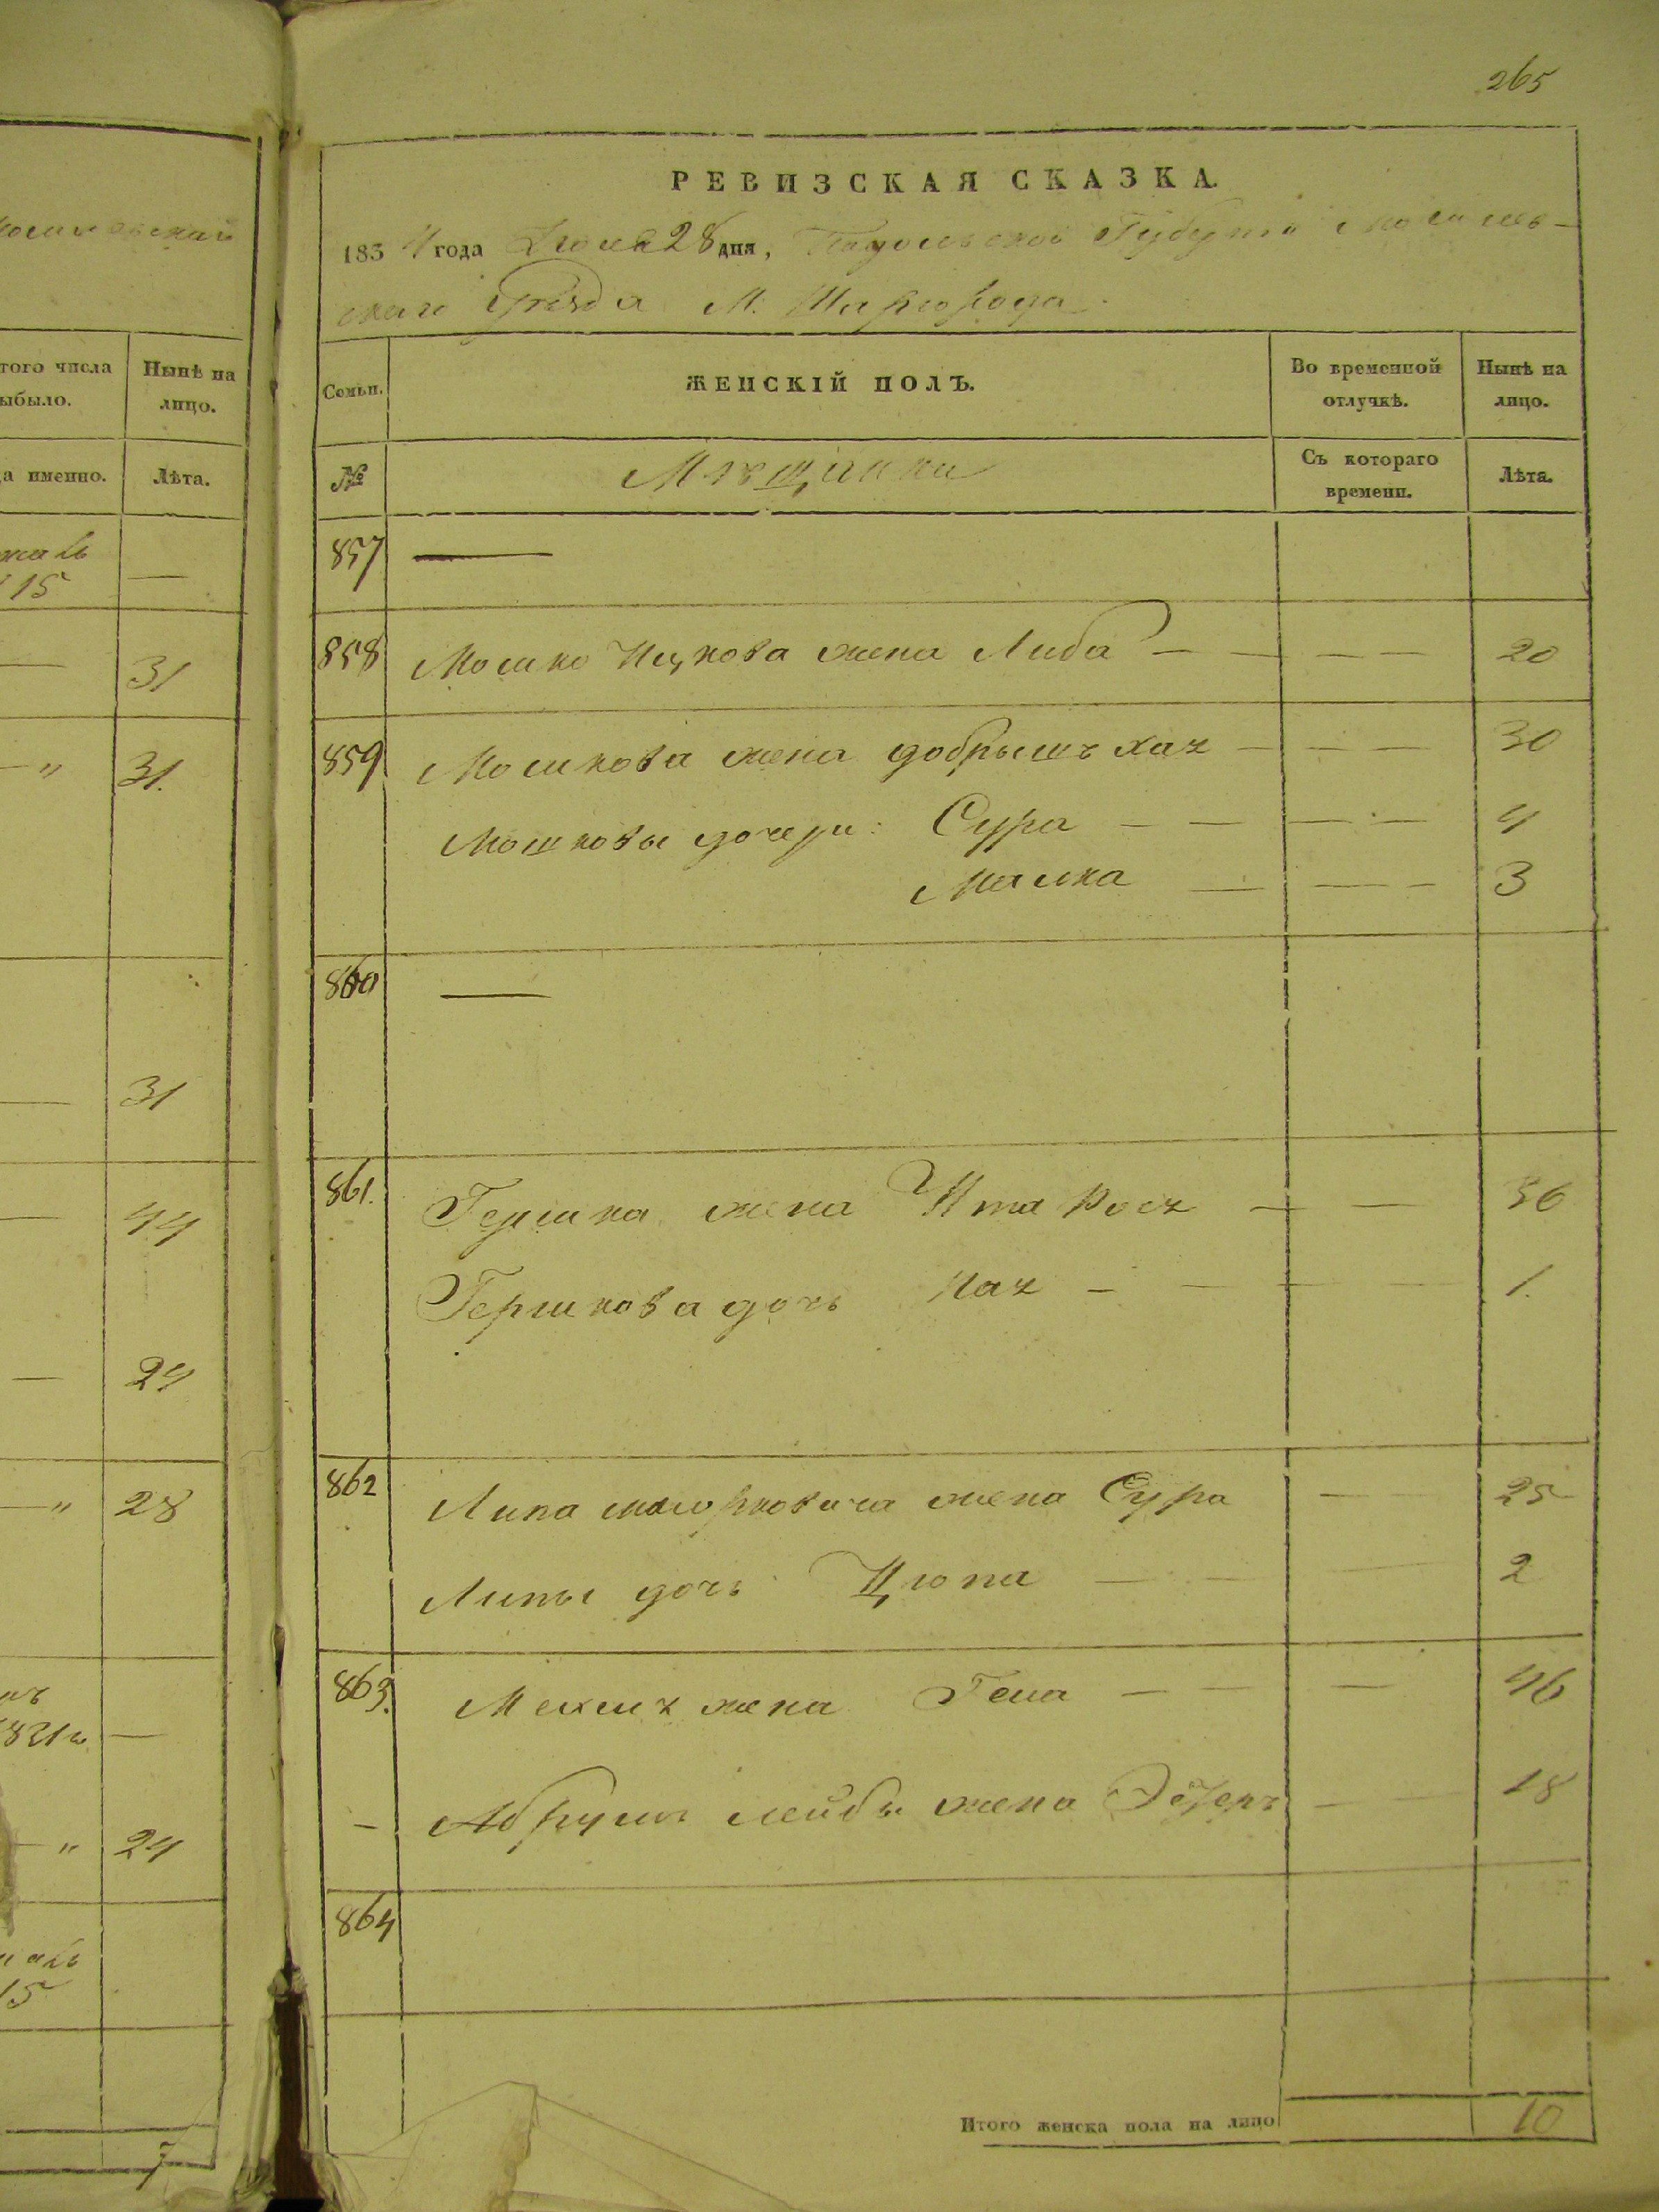 265
РЕВИЗСКАЯ СКАЗКА.
1834 года Июня 28 дня, Подольской Губернiи Могилев-
скаго Уѣзда М. Шаргорода.
того числа
ыбыло.
Нынѣ на
лицо.
а именно.
Лѣта.
15
31
31.
31
44
24
28
24
15
7
Семьи.
ЖЕНСКIЙ ПОЛЪ.
Во временной
отлучкѣ.
Нынѣ на
лицо.
№
Мѣщанки
Съ котораго
времени.
Лѣта.
857 —
858 Мошко Ицкова жена Либа — — — — 20
859 Мошкова жена добрышъ хая — — — 30
Мошковы дочери: Сура — — — — 4
Малка — — — 3
860 —
861. Гершка жена Ита — — 36
Гершкова дочь Хая — — — 1.
862 Липа жена Сура — — 25
Липы дочь Цюпа — — 2
863. жена Геня — — — 46
— Абрумъ лейбы жена Эстеръ — 18
864
Итого женска пола на лицо 10